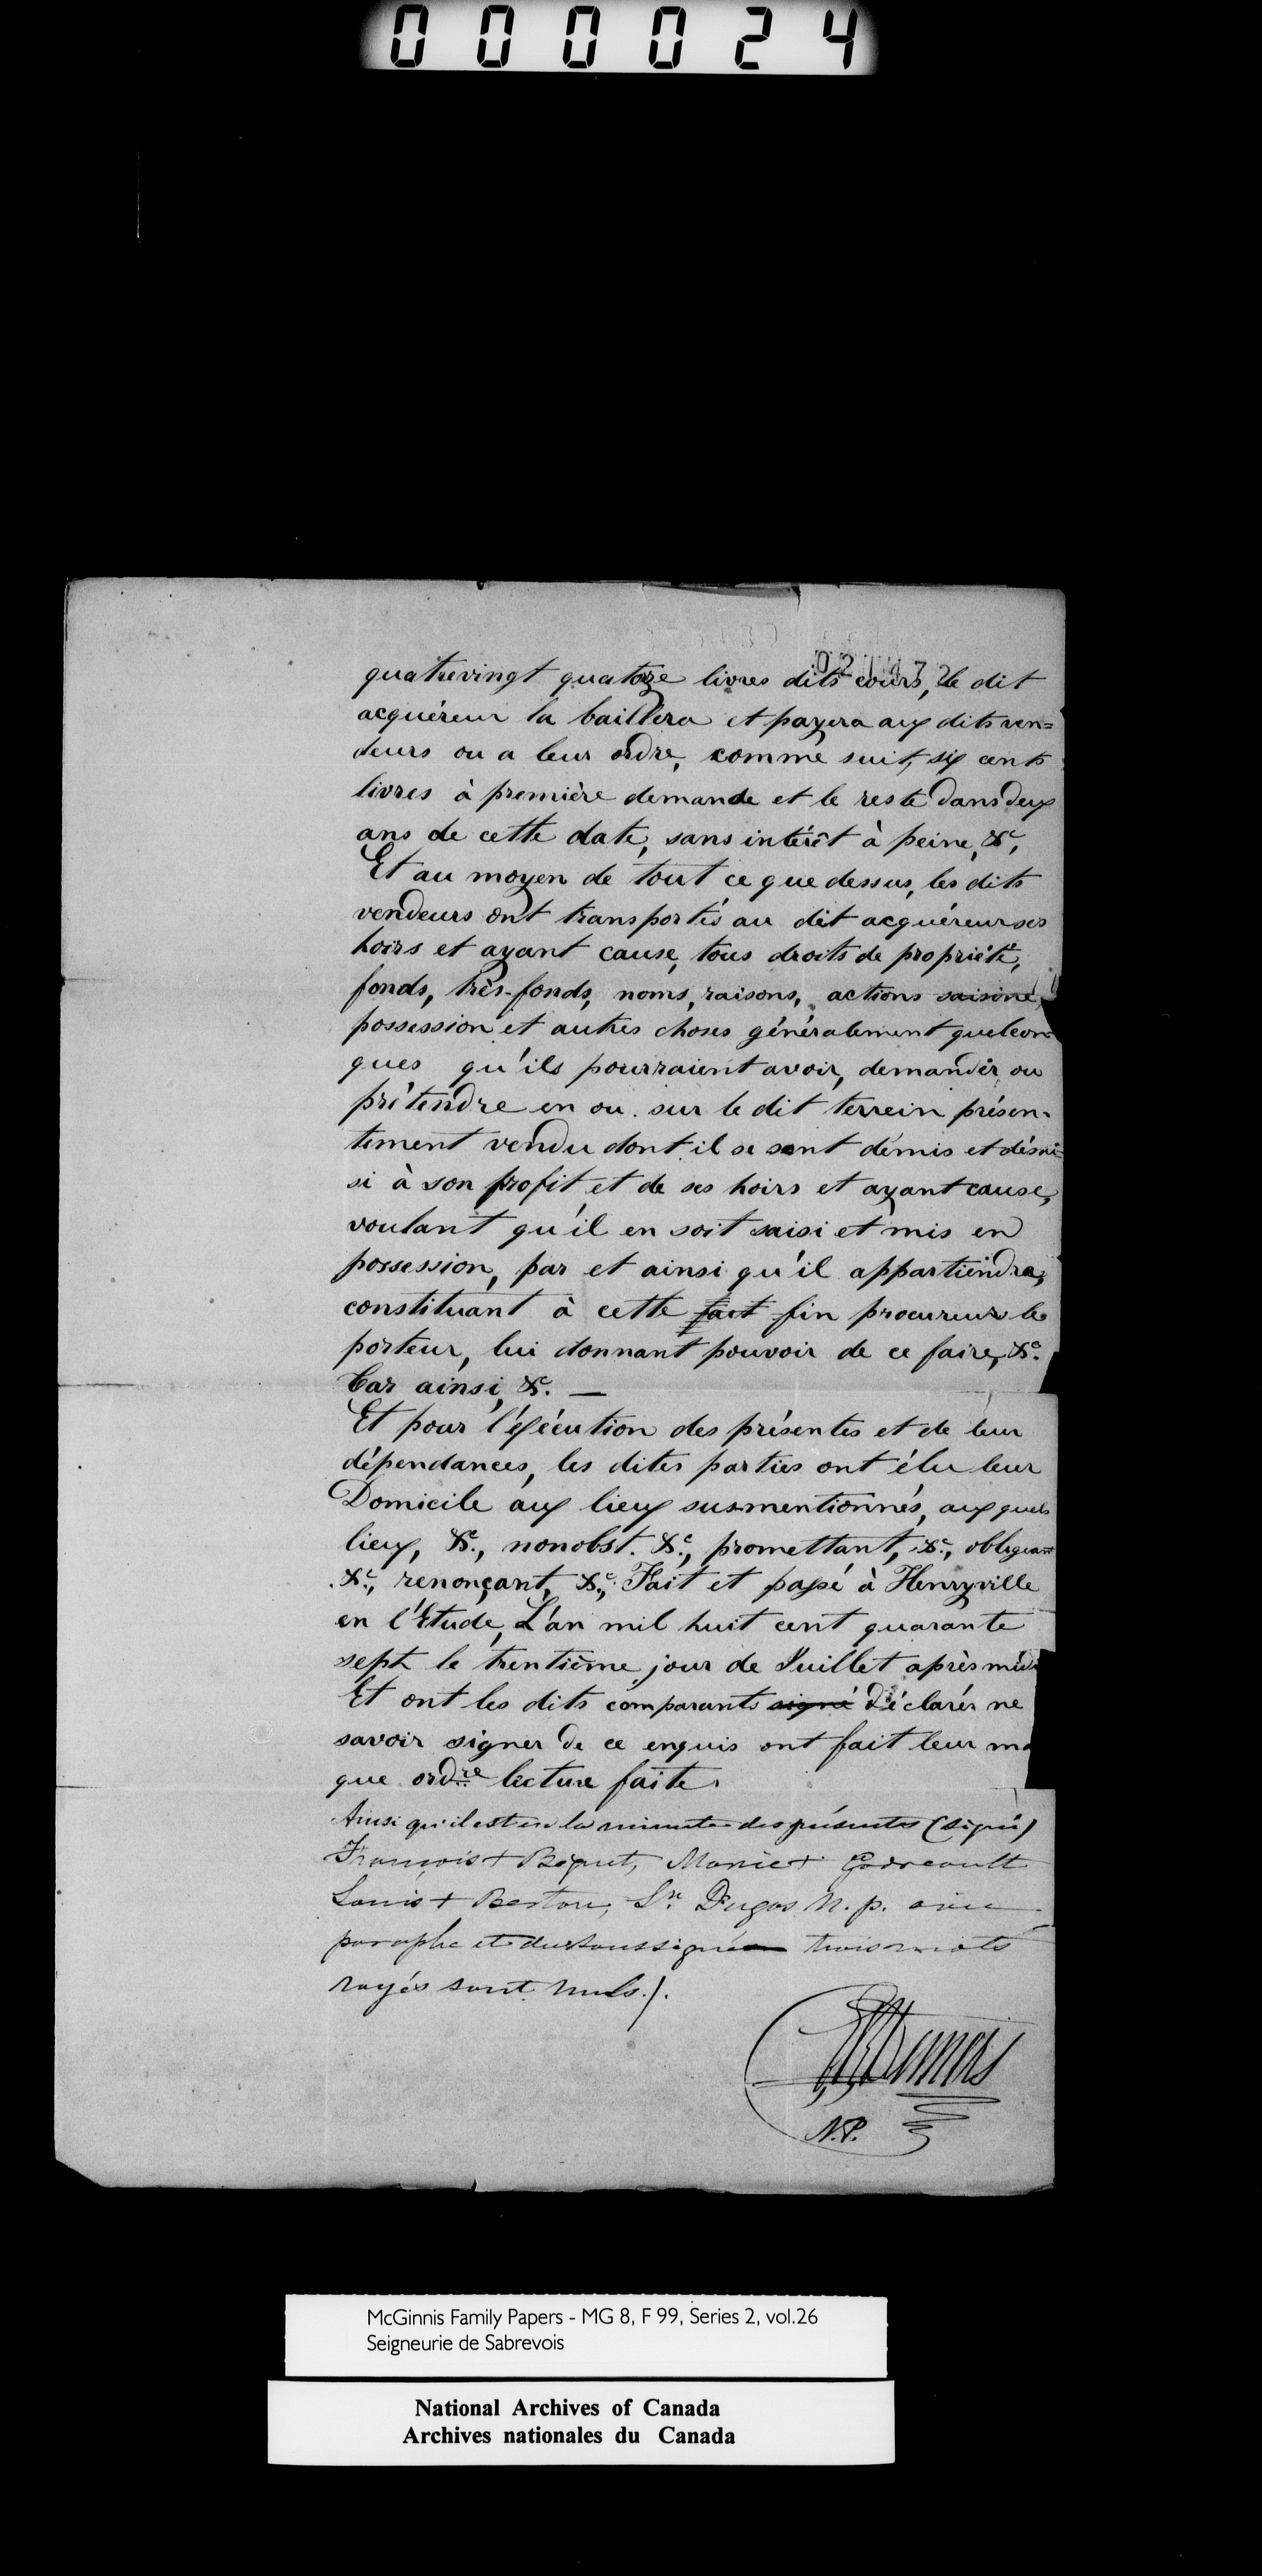 000024
quatrevingt quatorze livres dits cours, le dit
acquéreur la baillera et payera aux dits ven=
deurs ou a leur ordre, comme suit, six cents
livres à première demande et le reste dans deux
ans de cette date, sans intérêt à peine, &c,
Et au moyen de tout ce que dessus, les dits
vendeurs ont transportés au dit acquéreur ses
hoirs et ayant cause, tous droits de propriété,
fonds, très-fonds, noms, raisons, actions saisine,
possession et autres choses généralement quelcon-
ques qu'ils pourraient avoir, demander ou
prétendre en ou sur le dit terrein présen-
tement vendu dont il se sont démis et désai=
si à son profit et de ses hoirs et ayant cause,
voulant qu'il en soit saisi et mis en
possession, par et ainsi qu'il appartiendra,
constituant à cette fait fin procureur le
porteur, lui donnant pouvoir de ce faire, &c.
Car ainsi, &c. —
Et pour l'éxécution des présentes et de leur
dépendances, les dites parties ont élu leur
Domicile aux lieux susmentionnés, aux quels
lieux, &c., nonobst. &c., promettant, &c., obligeant
&c., renonçant, &c., Fait et passé à Henryville
en l'Etude, L'an mil huit cent quarante
sept le trentième jour de Juillet après midi
Et ont les dits comparants signé déclarés ne
savoir signer de ce enquis ont fait leur mar
que ordre lecture faite.
Ainsi qu'il est en la minute des présentes (signé)
François + Béqut, Marie + Godreault
Louis + Berton, Sn. Dugas N. p. avec
paraphe et du soussigné trois mots
rayés sont nuls./.
N.P.
McGinnis Family Papers - MG 8, F 99, Series 2, vol.26
Seigneurie de Sabrevois
National Archives of Canada
Archives nationales du Canada